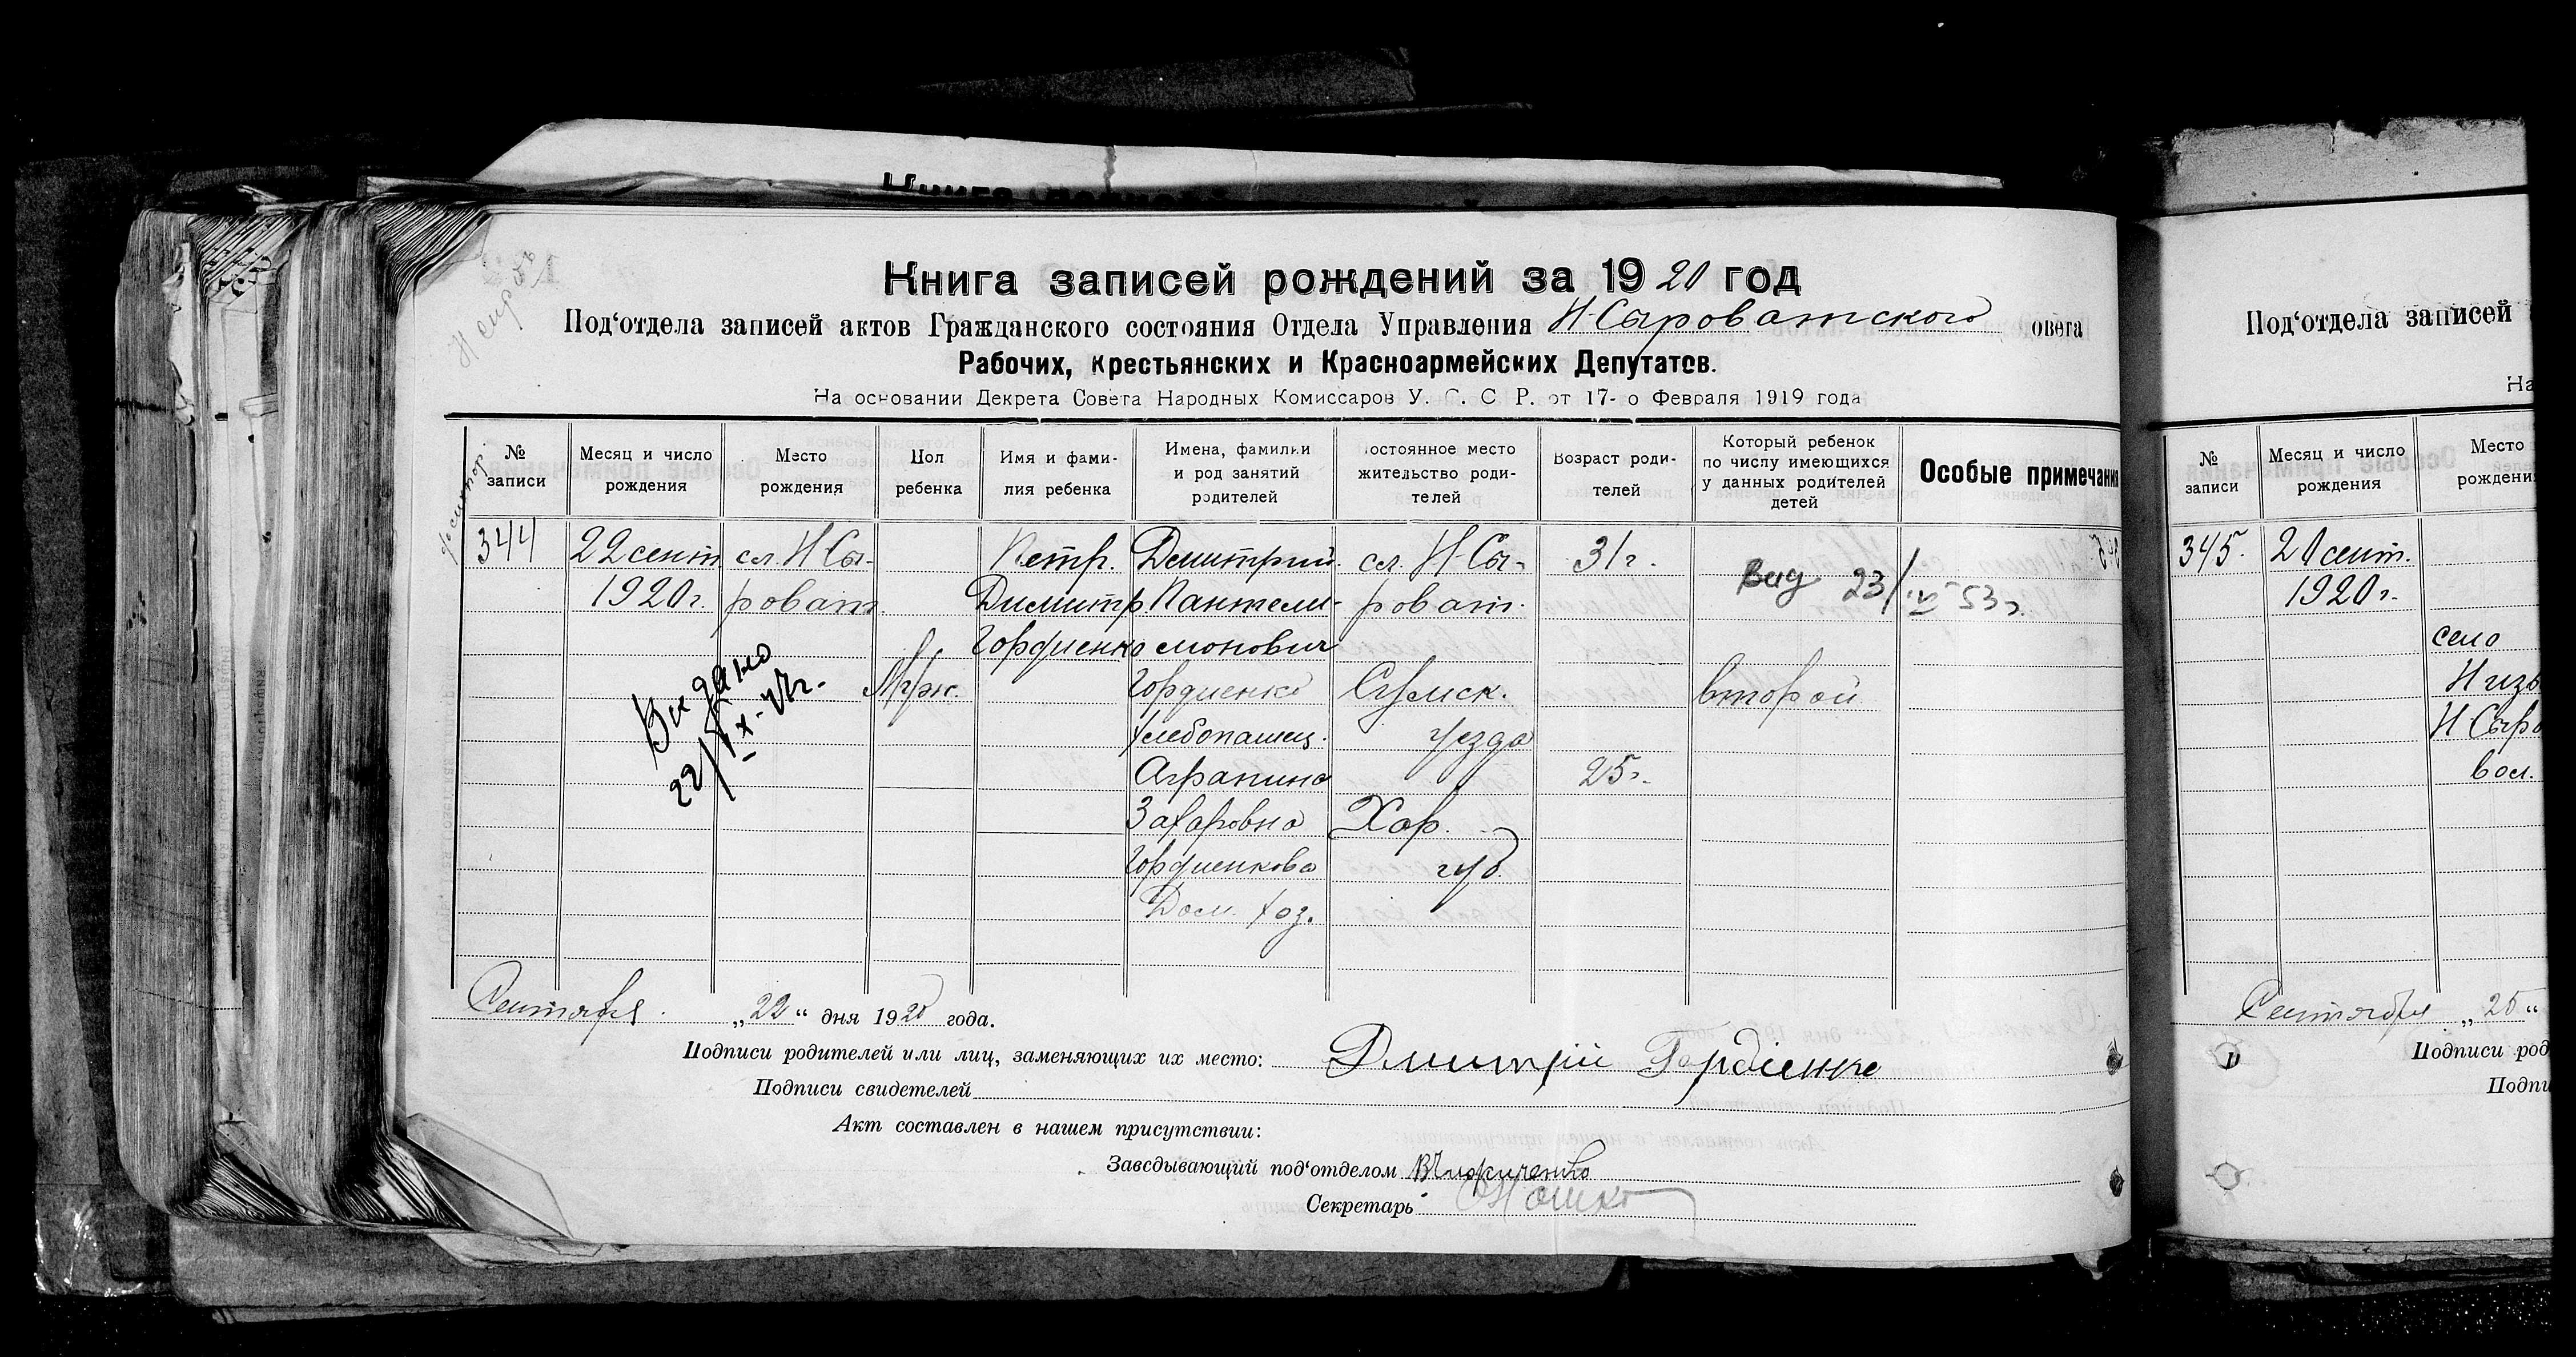 Книга записей рождений за 1920 год
Под‘отдела записей актов Гражданского состояния Отдела Управления Н-Сыроватского овета
Рабочих, Крестьянских и Красноармейских Депутатов.
На основании Декрета Совета Народных Комиссаров У. С. С Р. от 17- о Февраля 1919 года
№ записи
Месяц и число рождения
Место рождения
Пол ребенка
Имя и фами-
лия ребенка
Имена, фамилии
и род занятий
родителей
остоянное место
жительство роди-
телей
Возраст роди-
телей
Который ребенок
по числу имеющихся
у данных родителей
детей
Особые примечания
344
22 сент
1920 г.
сл. Н Сы-
роват.
Муж.
Петр.
Димитр
Гордиенко
Дмитрий
Пантели-
монович
Гордиенко
хлебопашец.
Аграпина
Захаровна
Гордиенкова
Дом. хоз.
сл. Н-Сы-
роват.
Сумск.
уезда
Хар.
губ.
31 г.
25 г.
второй
Выд 23/IV 53 г.
Выдано
22/IX-47г.
Сентября. „22“ дня 1920 года.
Подписи родителей или лиц, заменяющих их место: Дмитрій Гордіенко
Подписи свидетелей
Акт составлен в нашем присутствии:
Заведывающий под‘отделом
Секретарь
Под‘отдела записей
На
№ записи
Месяц и число рождения
Место
рождени
345.
20 сент.
1920 г.
село
Низ
Н Сыро
вол.
Сентября „25“
Подписи род
Подпи